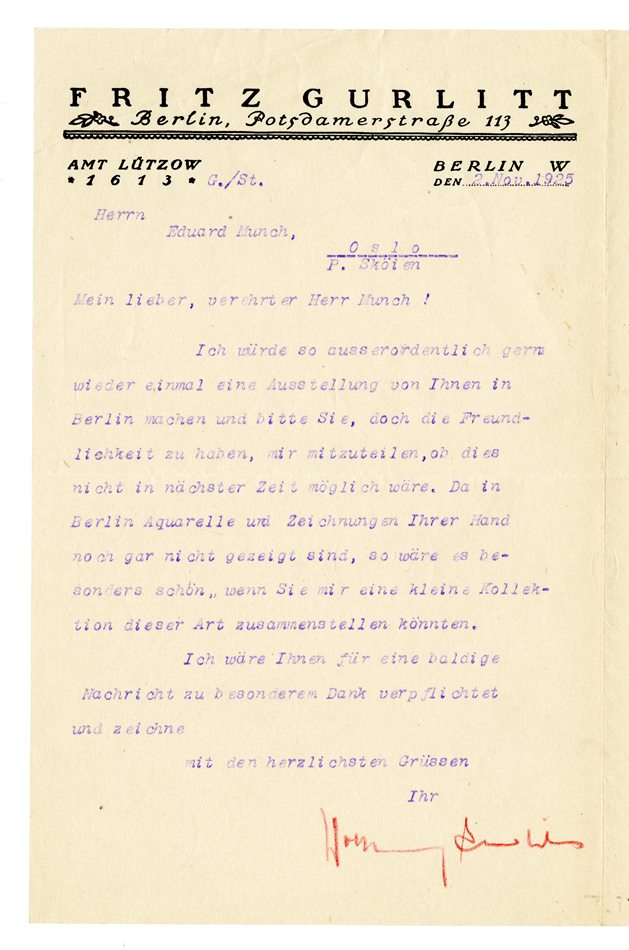 FRITZ GURLITT
Berlin, Potsdamerstraße 113
AMT LÜTZOW
* 1613 * G./St.
BERLIN W
DEN 2. Nov. 1925
Herrn
Eduard Munch,
Oslo
P. Sköien
Mein lieber, verehrter Herr Munch !
Ich würde so ausserordentlich gern
wieder einmal eine Ausstellung von Ihnen in
Berlin machen und bitte Sie, doch die Freund-
lichkeit zu haben, mir mitzuteilen, ob dies
nicht in nächster Zeit möglich wäre. Da in
Berlin Aquarelle und Zeichnungen Ihrer Hand
noch gar nicht gezeigt sind, so wäre es be-
sonders schön,, wenn Sie mir eine kleine Kollek-
tion dieser Art zusammenstellen könnten.
Ich wäre Ihnen für eine baldige
Nachricht zu besonderem Dank verpflichtet
und zeichne
mit den herzlichsten Grüssen
Ihr